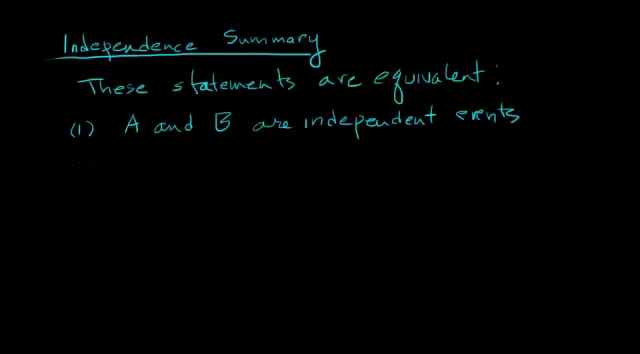 Independence Summary
These statements are equivalent:
(1) A and B are independent events